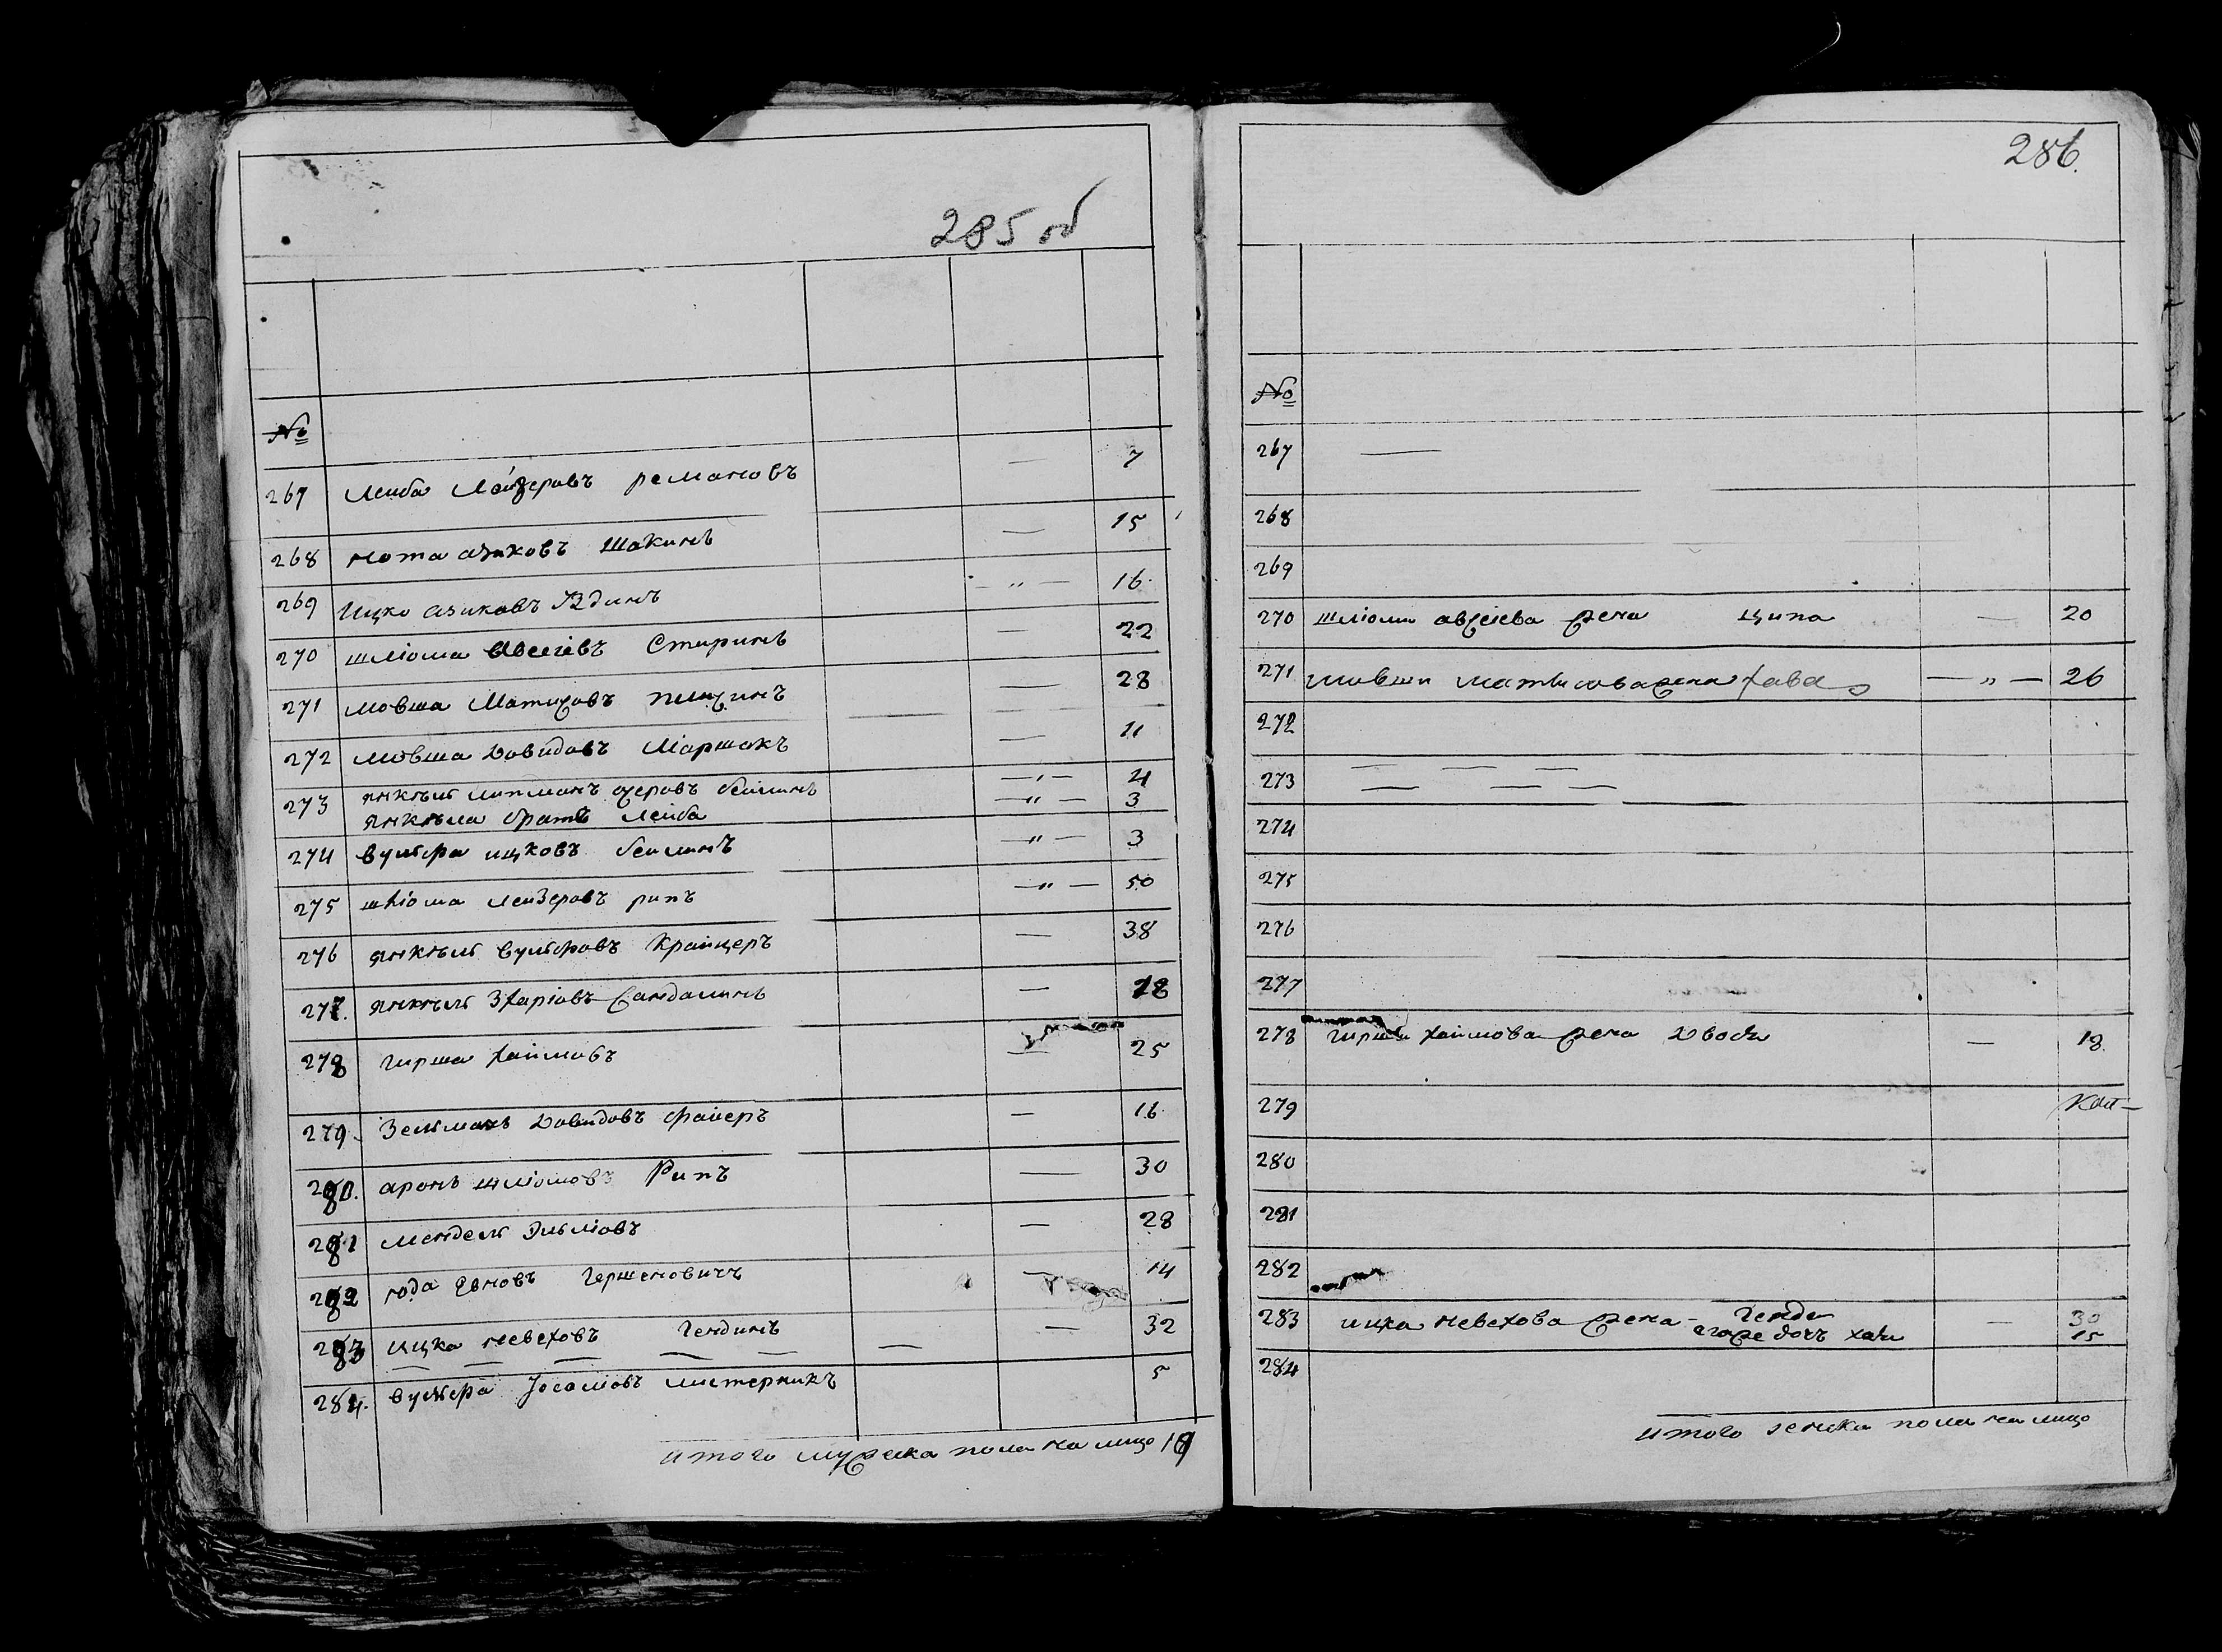 285 об
№
267 Лейба Лейзеровъ романовъ — 7
268 нота азиковъ шакинъ — 15
269 Ицко азиковъ — " — 16
270 шліома Авсеіевъ Стиринъ — 22
271 мовша Матисовъ — 28
272 мовша Довидовъ Маршакъ — 11
273 янкель липманъ озеровъ бейлинъ — " — 4
янкеля братъ лейба — " — 3
274 вульфа ицковъ бейлинъ — " — 3
275 шліома лейзеровъ рипъ — " — 50
276 янкель вульфовъ Крайцеръ — 38
277. янкель Зхаріовъ Сандалинъ — 18
278 гирша хаимовъ — 25
279. Зельманъ Довидовъ файеръ — 16
280. аронъ шліомовъ Рипъ — 30
281 мендель — 28
282 Гершеновичъ — 14
283 ицка невеховъ Гендинъ — 32
284. вульфа — 5
итого мужеска пола на лицо
286.
№
267 —
268
269
270 шліомы авсеіева жена ципа — 20
271 мовши матысова жена хава — " — 26
272
273 — — —
— — —
274
275
276
277
278 гирши хаимова жена Двося — 18.
279
280
281
282
283 ицка невехова жена — Генде — 30
егоже дочь хая 15
284
итого женска пола на лицо